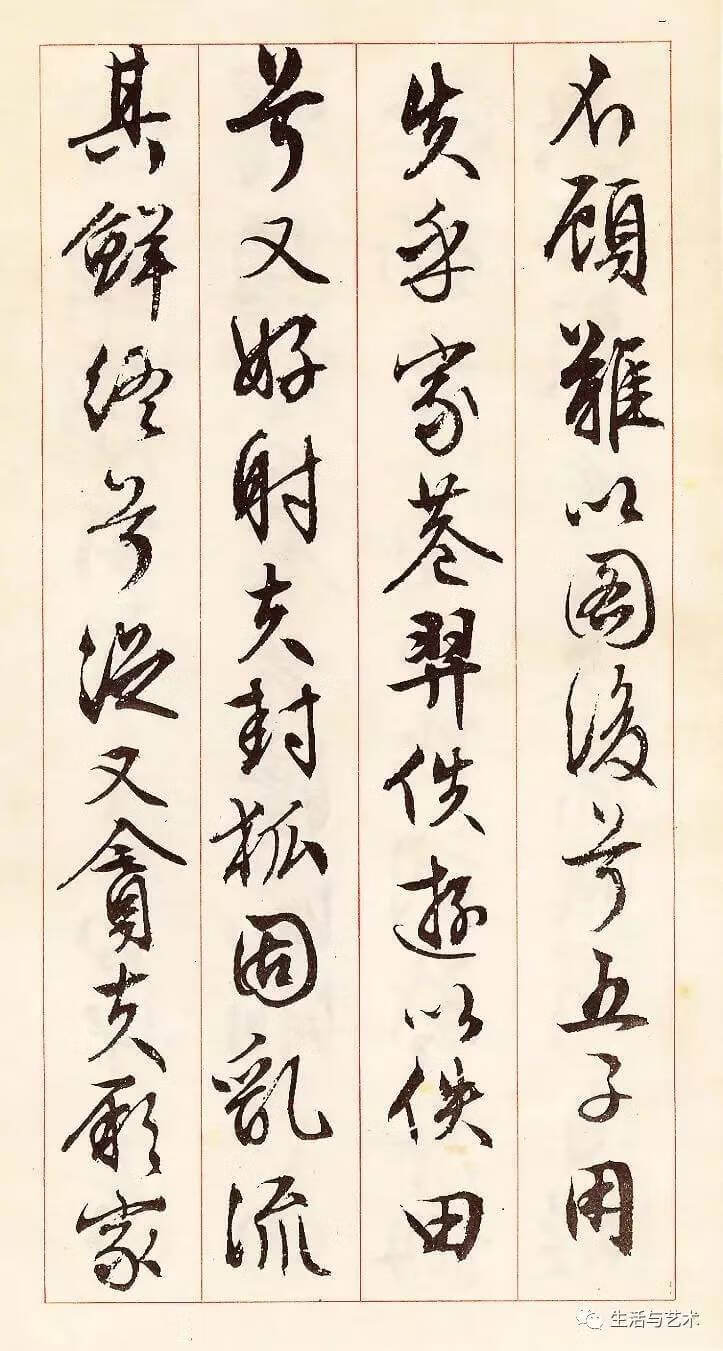 不顧難以圖後兮五子用
失乎家巷羿佚遊以佚田
兮又好射夫封狐固亂流
其鮮終兮浞又貪夫厥家
生活与艺术